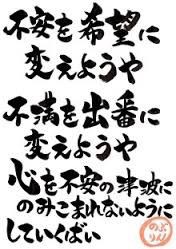 不安を希望に
変えようや
不満を出番に
変えようや
心を不安の津波に
のみこまれないように
していくばい
のぶ
りん